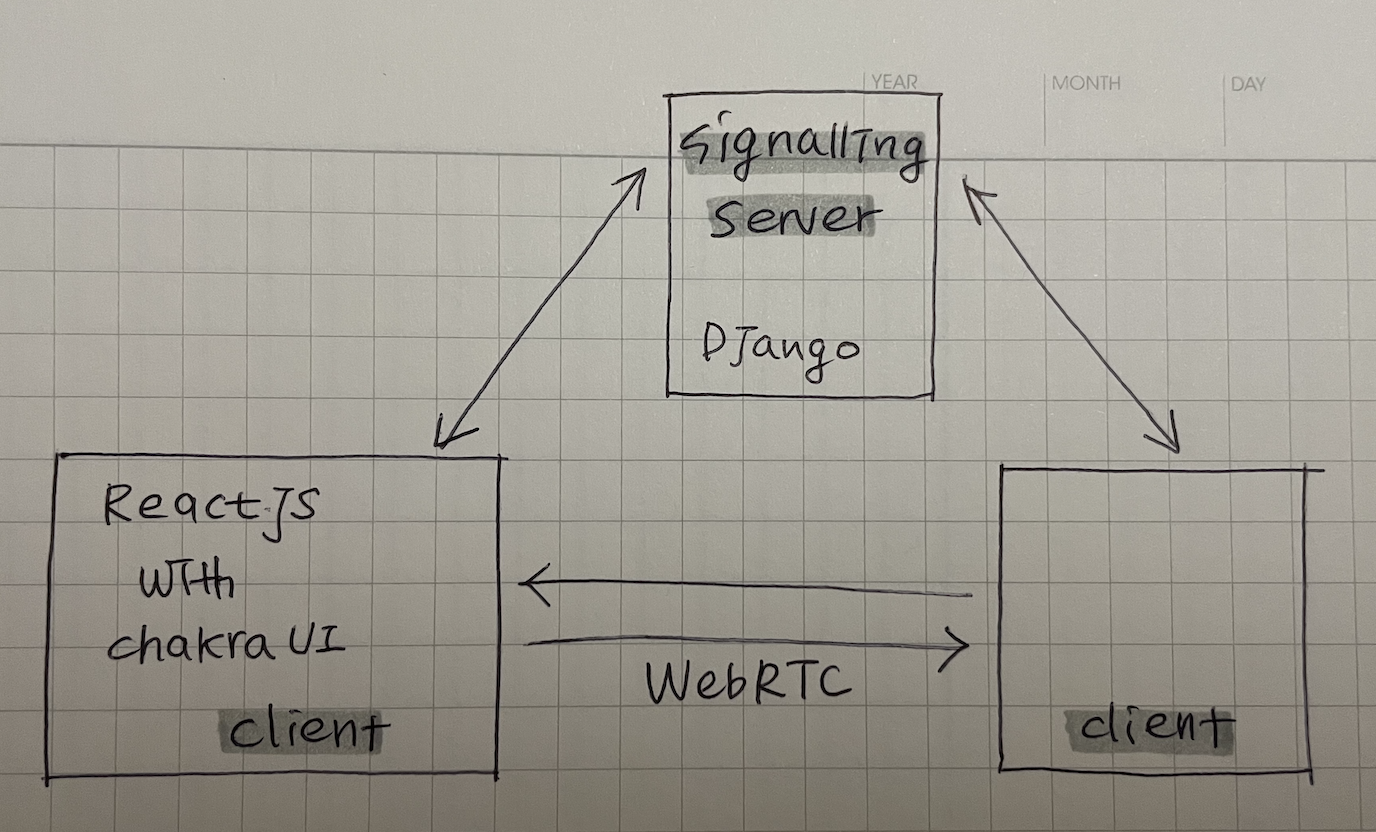 YEAR MONTH DAY
Signalling
Server
Django
React.js
with
chakra UI
client
WebRTC
client